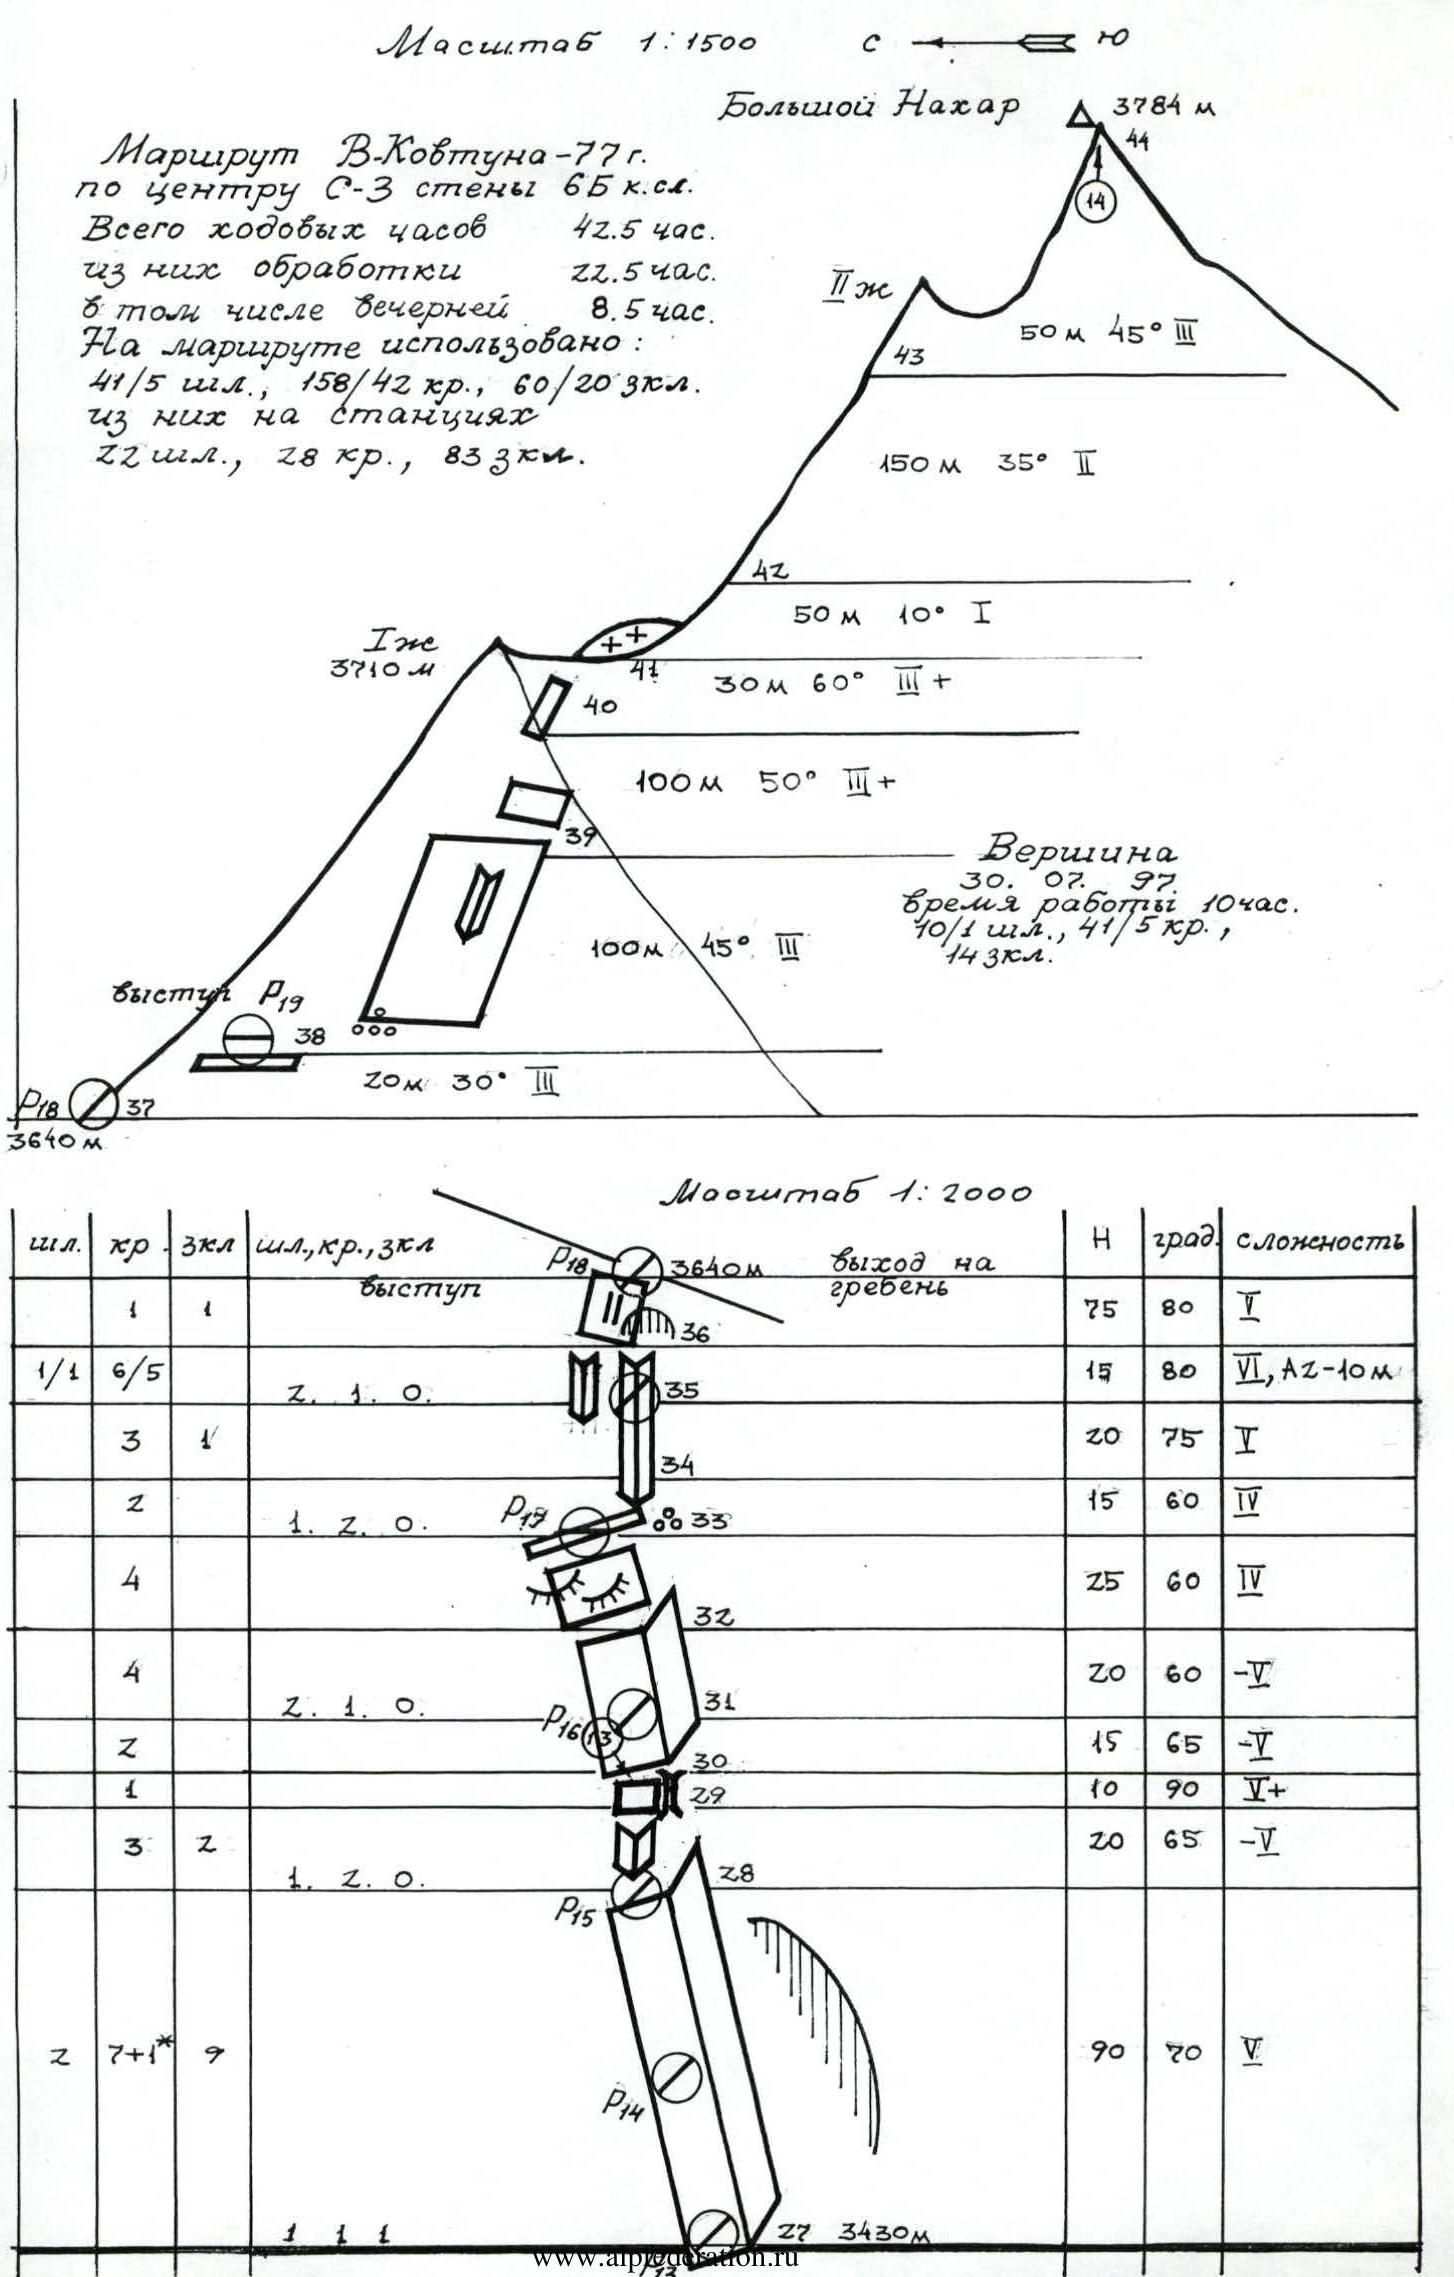 Масштаб 1:1500 С Ю
Большой Нахар 3784 м
44
14
Маршрут В-Ковтуна-77 г.
по центру С-З стены 6Б к.сл.
Всего ходовых часов 42.5 час.
из них обработки 22.5 час.
в том числе вечерней 8.5 час.
На маршруте использовано:
41/5 шл., 158/42 кр., 60/20 зкл.
из них на станциях
22 шл., 28 кр., 83 зкл.
II ж
50 м 45° III
43
150 м 35° II
42
50 м 10° I
I ж
3710 м
41
30 м 60° III+
40
100 м 50° III+
39
Вершина
30. 07. 97
время работы 10 час.
10/1 шл., 41/5 кр.,
14 зкл.
100 м 45° III
выступ P19
38
20 м 30° III
P18 37
3640 м
Масштаб 1:2000
шл. кр. зкл шл., кр., зкл H град. сложность
выступ P18 3640 м выход на гребень
1 1 36 75 80 V
1/1 6/5 2. 1. 0. 35 15 80 VI, A2-10 м
3 1 34 20 75 V
2 1. 2. 0. P17 33 15 60 IV
4 32 25 60 IV
4 2. 1. 0. 31 20 60 -V
P16 13
2 30 15 65 -V
1 29 10 90 V+
3 2 1. 2. 0. 28 20 65 -V
P15
2 7+1* 9 90 70 V
P14
1 1 1 27 3430 м
P13
www.alpfederation.ru